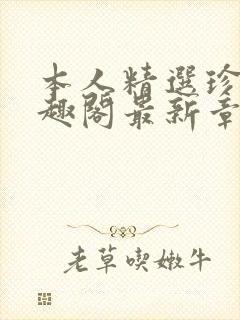 本人精選珍
趣閣最新章
老草喫嫩牛